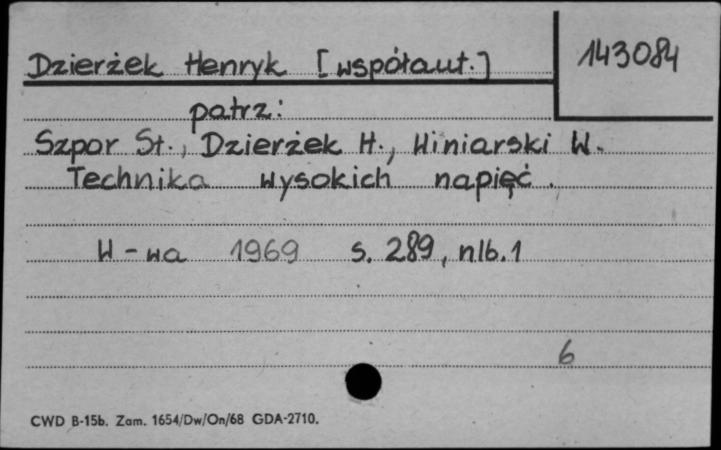 Dzierżek Henryk [współaut.]
143084
patrz:
Szpor St., Dzierżek H., Winiarski W.
Technika wysokich napięć.
W-wa 1969 s. 289, nlb. 1
6
CWD B-15b. Zam. 1654/Dw/On/68 GDA-2710.